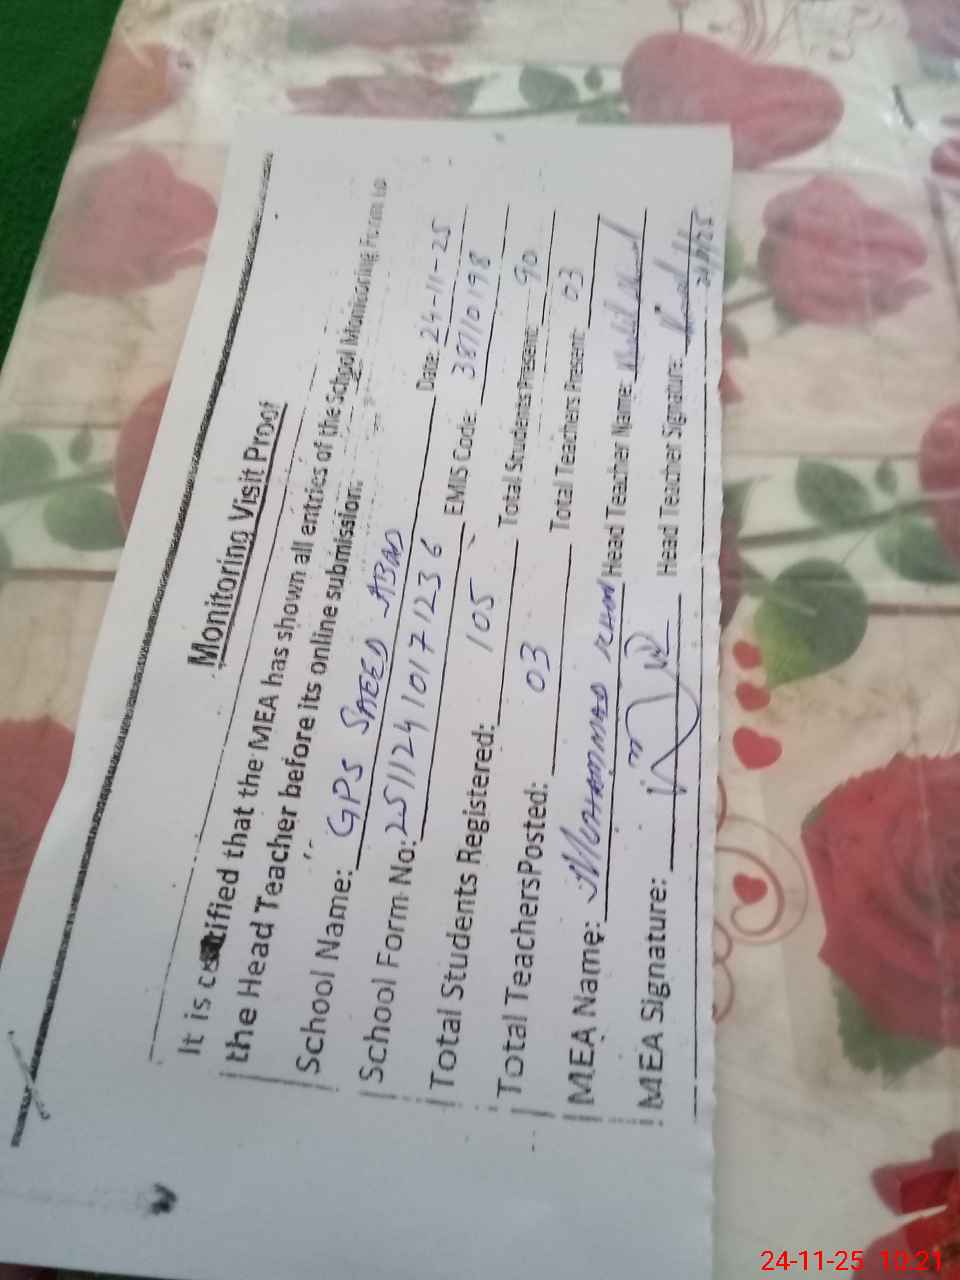 Monitoring Visit Proof
It is certified that the MEA has shown all entries of the School Monitoring Form to
the Head Teacher before its online submission.
School Name: GPS SAEED ABAD Date: 24-11-25
School Form No: 25112410171236 EMIS Code: 38110198
Total Students Registered: 105 Total Students Present: 90
Total TeachersPosted: 03 Total Teachers Present: 03
MEA Name: MUHAMMAD KHAN Head Teacher Name:
MEA Signature: Head Teacher Signature:
24-11-25 10:21